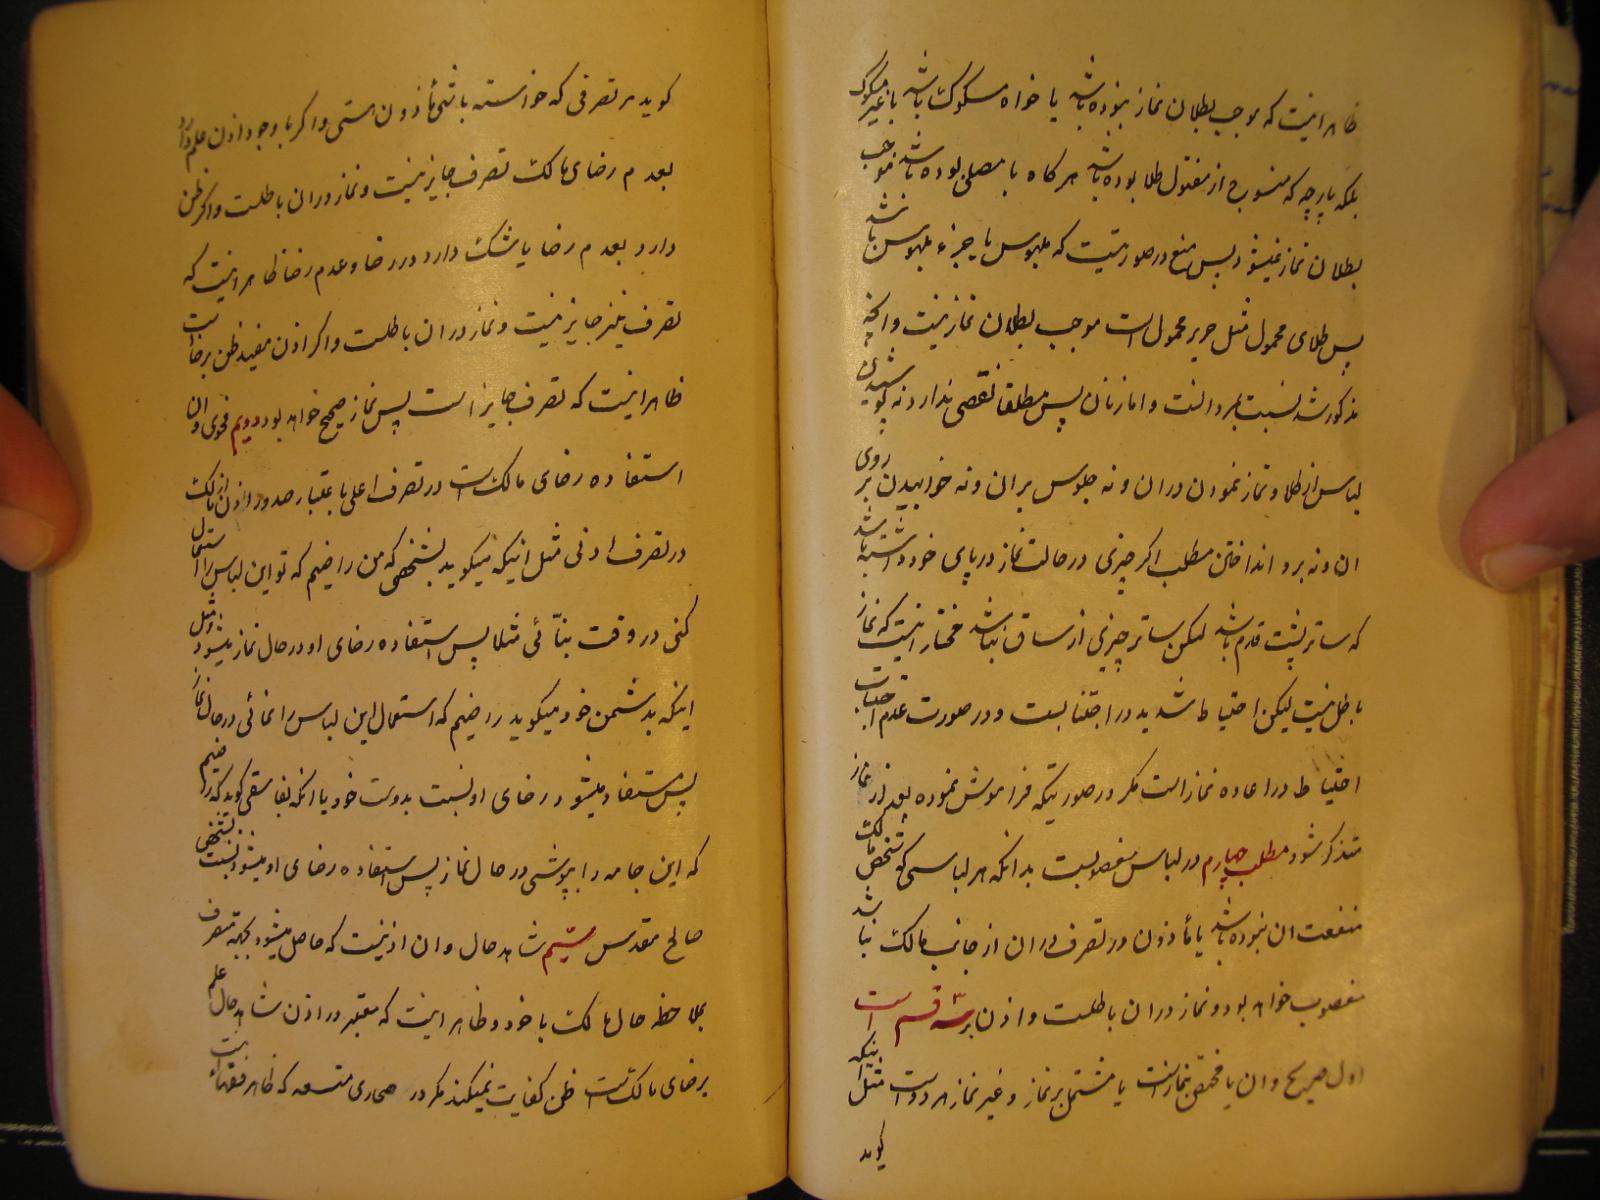 ظاهر اینست که موجب بطلان نماز نبوده باشد یا خواه مسکوک باشد یا غیر مسکوک
بلکه پارچه که منسوج از مفتول طلا بوده باشد هر کاه با مصلی بوده باشد موجب
بطلان نماز نمیشود پس منع در صورتیست که ملبوس یا جزء ملبوس باشد
پس طلای محمول مثل حریر محمول است موجب بطلان نماز نیست و انچه
مذکور شد نسبت بمرد است و اما زنان پس مطلقا نقصی ندارد نه پوشیدن
لباس از طلا و نماز نمودن در ان و نه جلوس بر ان و نه خوابیدن بر روی
ان و نه برو انداختن مطلب اکر چیزی در حالت نماز در پای خود داشته باشد
که ساتر پشت قدم باشد لیکن ساتر چیزی از ساق نباشد مختار اینست که نماز
باطل نیست لیکن احتیاط شدید در اجتنابست و در صورت عدم اجتناب
احتیاط در اعاده نماز است مکر در صورتیکه فراموش نموده بعد از نماز
متذکر شود مطلب چهارم در لباس مغصوبست بدانکه هر لباسی که شخص مالک
منفعت ان نبوده باشد یا مأذون در تصرف در ان از جانب مالک نباشد
مغصوب خواهد بود و نماز در ان باطلست و اذن بر سه قسم است
اول صریح و ان یا مختص بنماز است یا مشتمل بر نماز و غیر نماز هر دو است مثل اینکه
کوید
کوید هر تصرفی که خواسته باشی مأذون هستی و اکر با وجود اذن علم دارد
بعدم رضای مالک تصرف جایز نیست و نماز در ان باطلست و اکر ظن
دارد بعدم رضا یا شک دارد در رضا و عدم رضا ظاهر اینست که
تصرف نیز جایز نیست و نماز در ان باطلست و اکر اذن مفید ظن برضاست
ظاهر اینست که تصرف جایز است پس نماز صحیح خواهد بود دویم فحوی و ان
استفاده رضای مالک است در تصرف اعلی باعتبار صدور اذن از مالک
در تصرف ادنی مثل اینکه میکوید بشخصی که من راضیم که تو این لباس را استعمال
کنی در وقت بنائی مثلا پس استفاده رضای او در حال نماز میشود و مثل
اینکه بدشمن خود میکوید راضیم که استعمال این لباس را نمائی در حال نماز
پس مستفاد میشود رضای او نسبت بدوست خود یا انکه بفاسقی کوید که راضیم
که این جامه را بپوشی در حال نماز پس استفاده رضای او میشود نسبت بشخص
صالح مقدس سیم شاهد حال و ان اذنیست که حاصل میشود بجهة متصرف
بملاحظه حال مالک با خود و ظاهر اینست که معتبر در اذن شاهد حال علم
برضای مالک است ظن کفایت نمیکند مکر در صحاری متسعه که ظاهر فقهاء